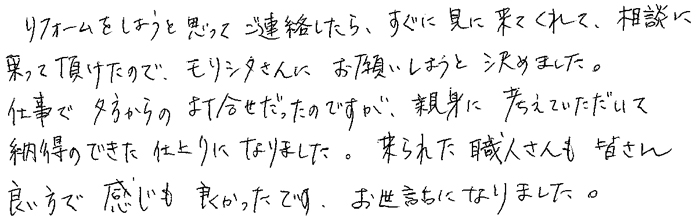 リフォームをしようと思ってご連絡したら、すぐに見に来てくれて、相談に
乗って頂けたので、モリシタさんにお願いしようと決めました。
仕事で夕方からの打合せだったのですが、親身に考えていただいて
納得のできた仕上りになりました。来られた職人さんも皆さん
良い方で感じも良かったです、お世話ちになりました。